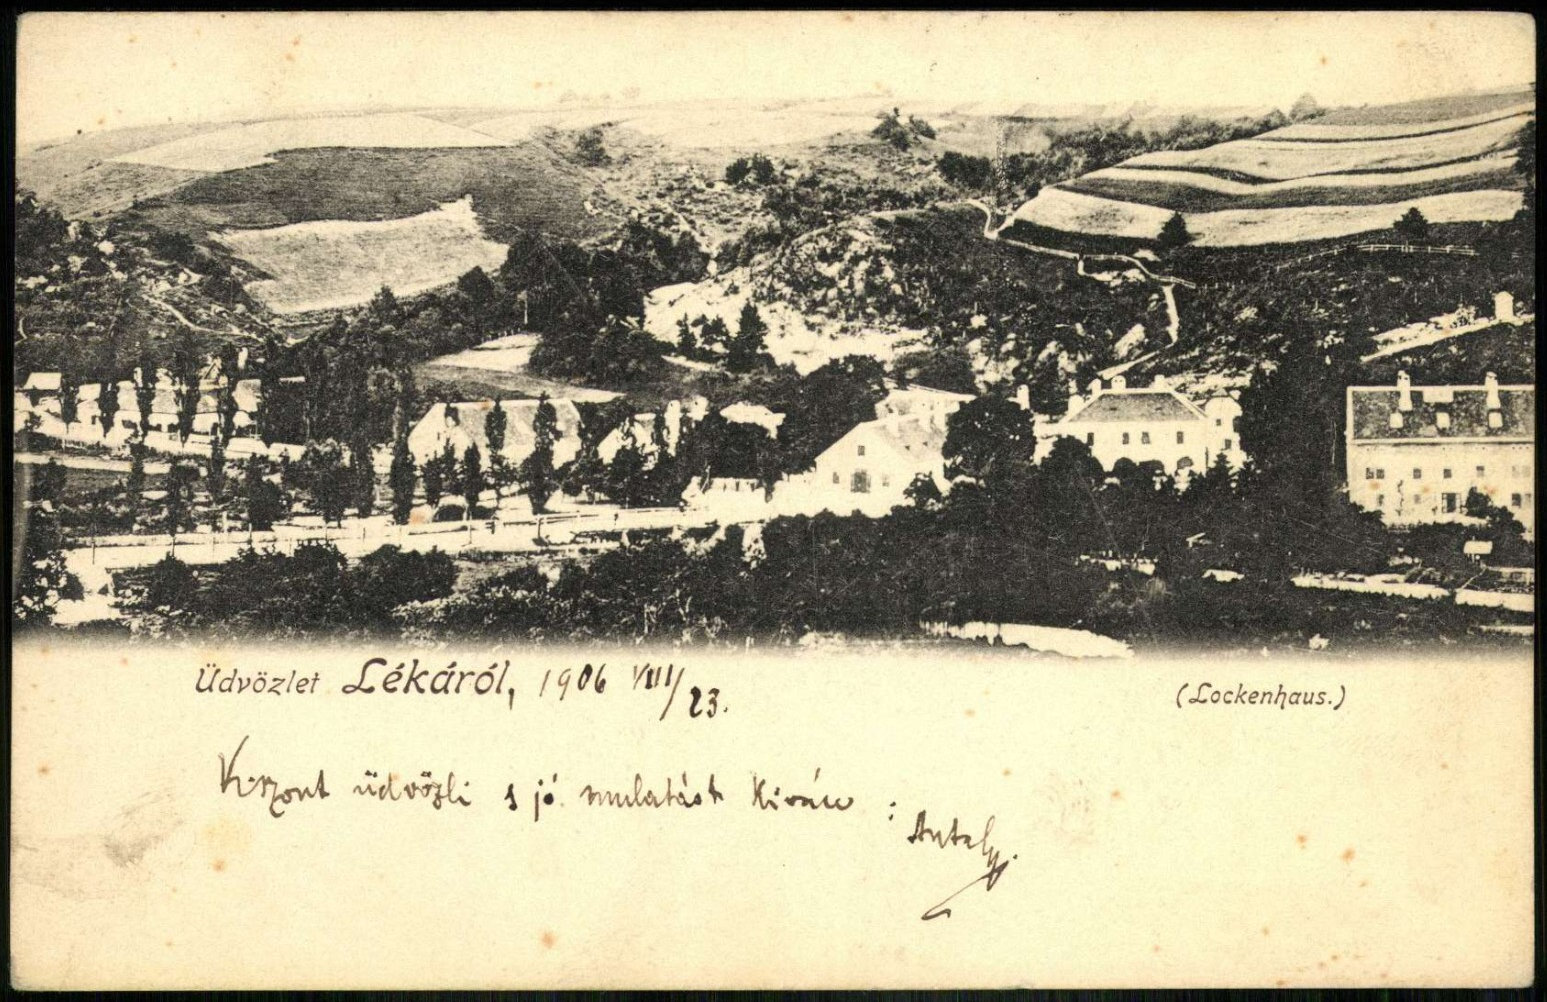 Üdvözlet Lékáról, 1906 VIII/23.
(Lockenhaus.)
Viszont üdvözli s jó mulatást kiván:
Antal